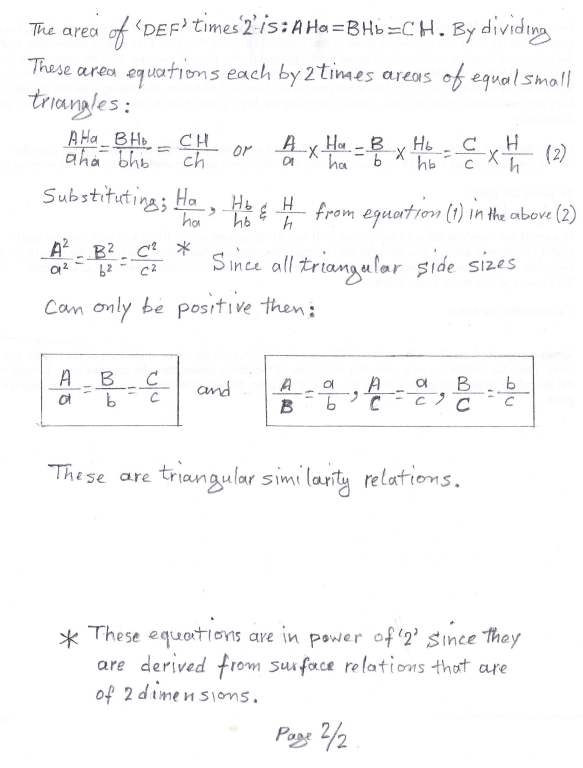 The area of ‘DEF’ times ‘2’ is: AHa=BHb=CH. By dividing
These area equations each by 2 times areas of equal small
triangles:
AHa/aha = BHb/bhb = CH/ch or A/a x Ha/ha = B/b x Hb/hb = C/c x H/h (2)
Substituting; Ha/ha, Hb/hb & H/h from equation (1) in the above (2)
A²/a² = B²/b² = C²/c² * Since all triangular side sizes
Can only be positive then:
A/a = B/b = C/c and A/B = a/b, A/C = a/c, B/C = b/c
These are triangular similarity relations.
* These equations are in power of ‘2’ since they
are derived from surface relations that are
of 2 dimensions.
Page 2/2